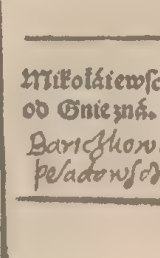 Mikołáiewsc
od Gniezná.
Bariczkow
pesadowsch